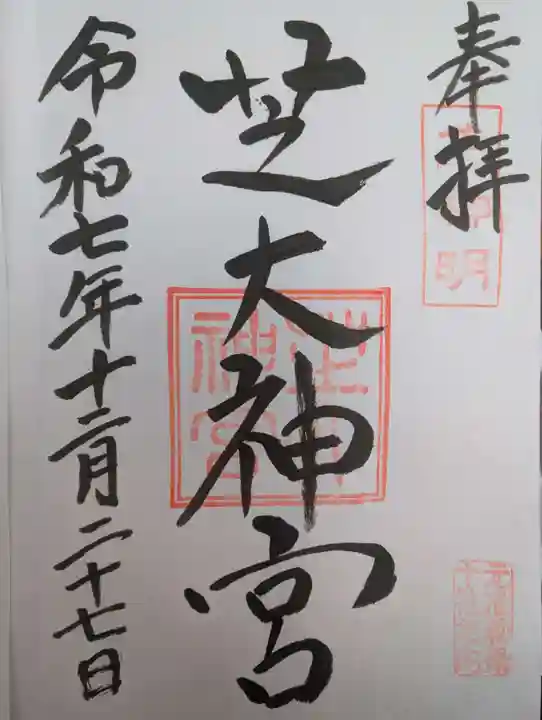 奉拝
芝大神宮
令和七年十二月二十七日
明
神宮